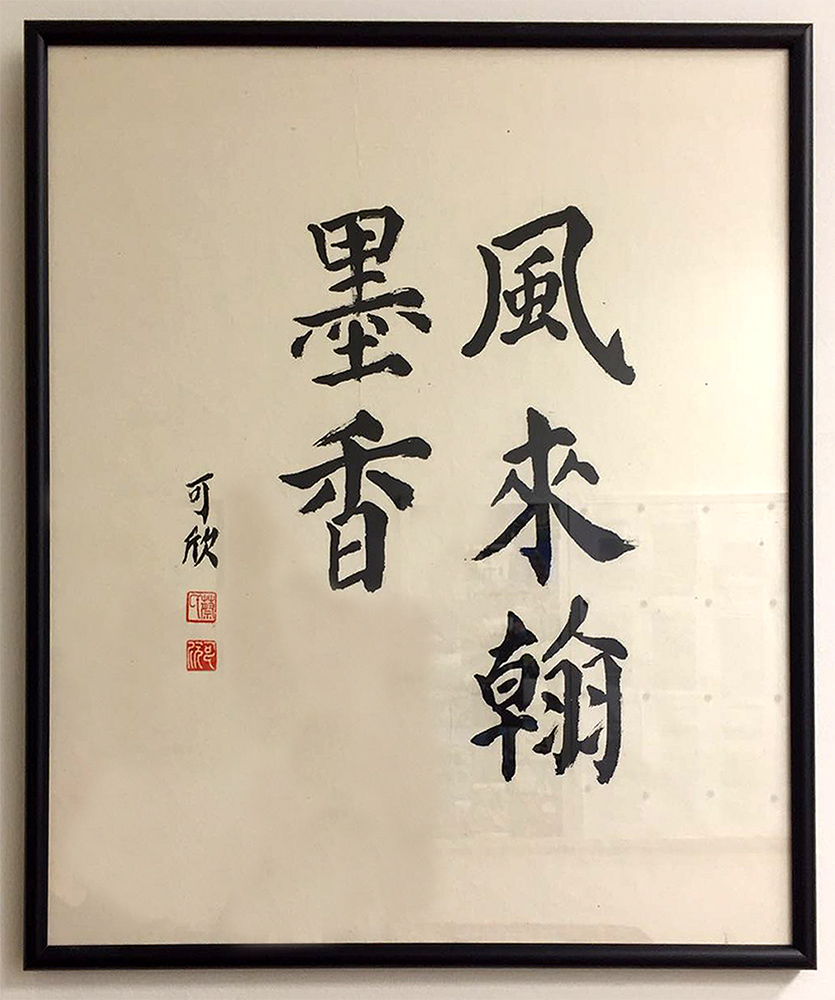 風來翰
墨香
可欣